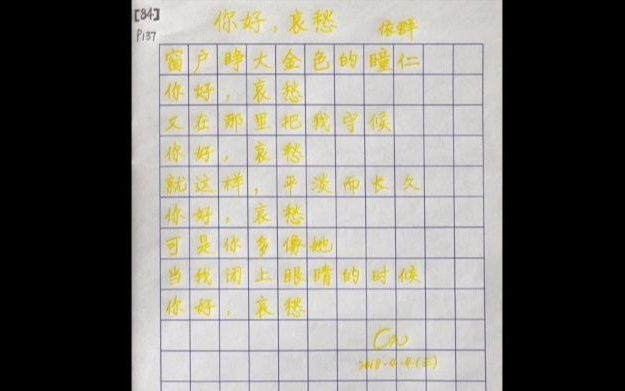 [84]
P137
你好，哀愁 依群
窗户睁大金色的瞳仁
你好，哀愁
又在那里把我守候
你好，哀愁
就这样，平淡而长久
你好，哀愁
可是你多像她
当我闭上眼睛的时候
你好，哀愁
2018.4.4.(三)